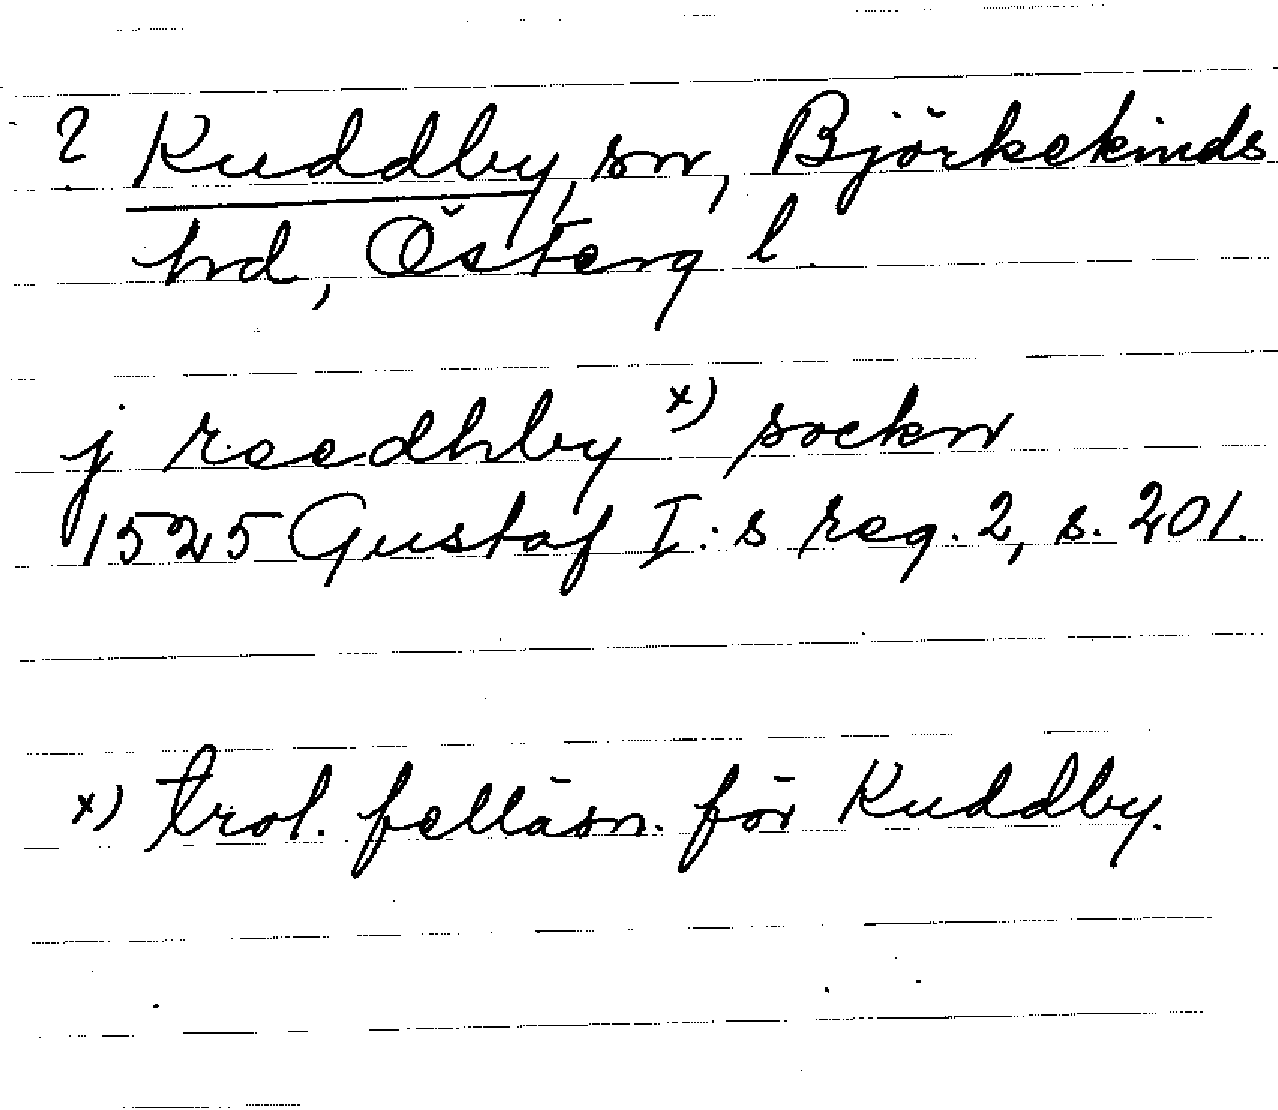 ? Kuddby, sn, Björkekinds
hrd, Österg l.
j reedhby x) sockn
1525 Gustaf I:s reg. 2, s. 201.
x) trol. felläsn. för Kuddby.